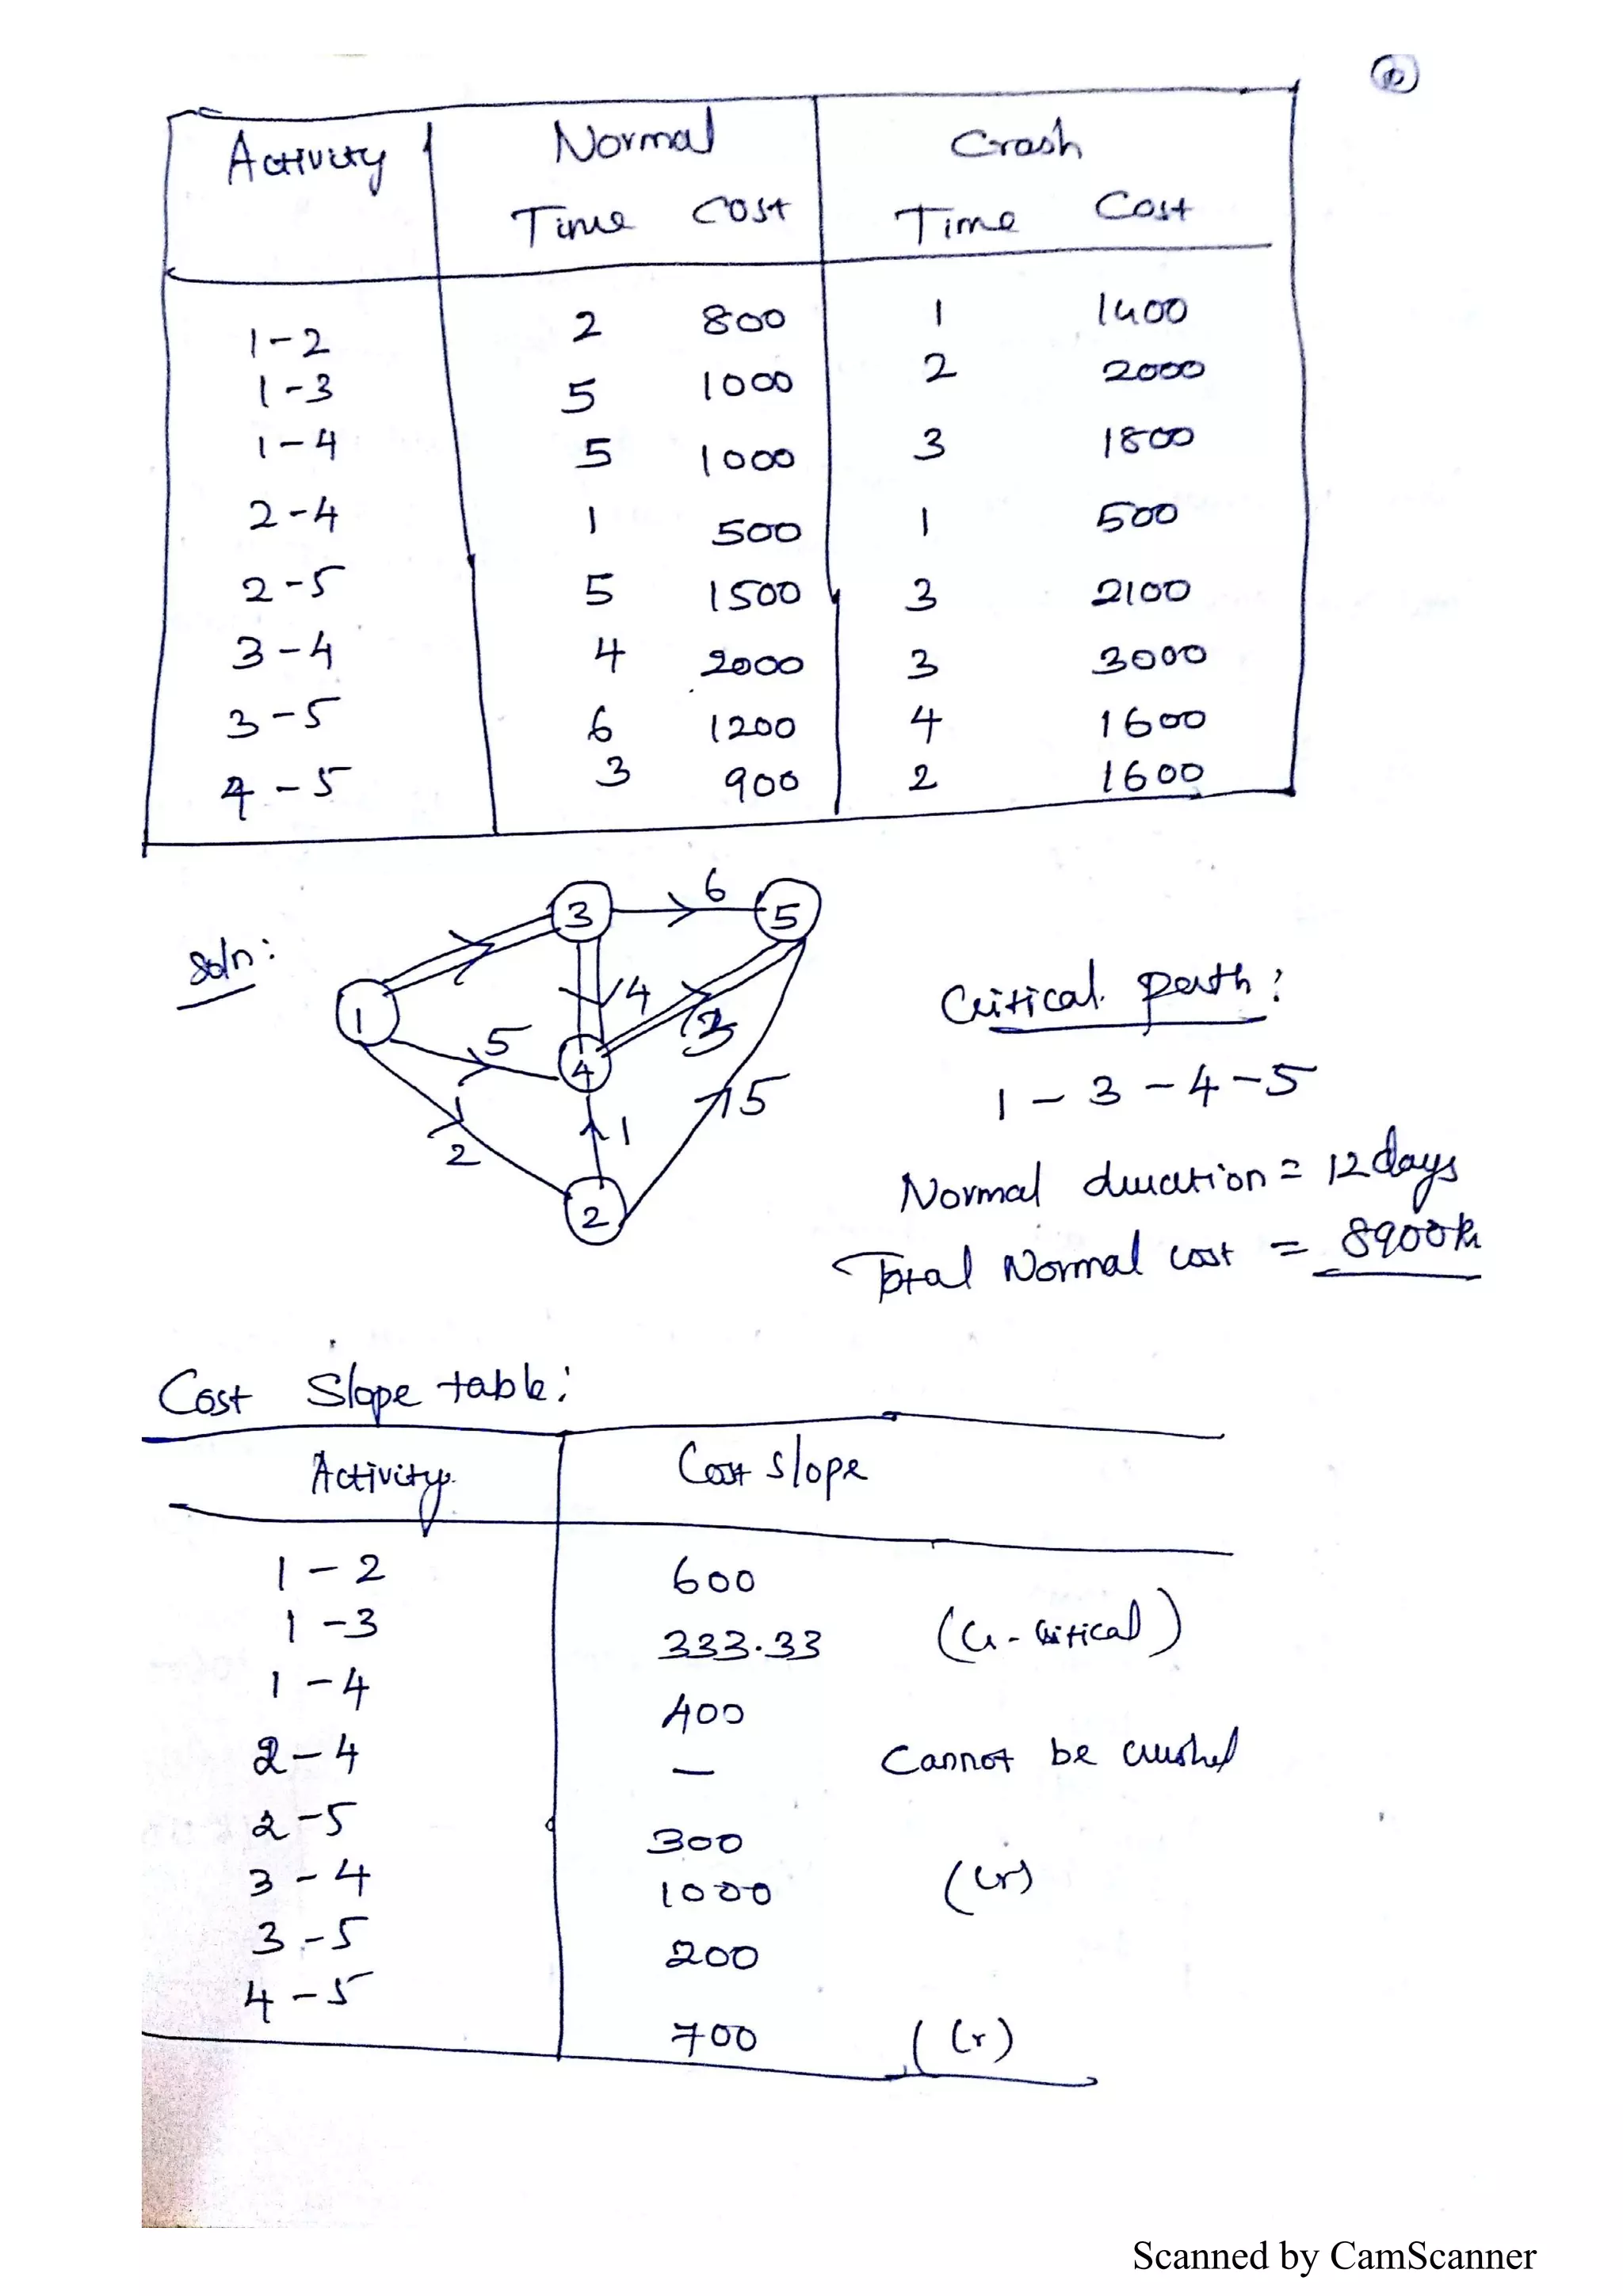 2
Activity Normal Crash
Time Cost Time Cost
1-2 2 800 1 1400
1-3 5 1000 2 2000
1-4 5 1000 3 1800
2-4 1 500 1 500
2-5 5 1500 3 2100
3-4 4 2000 3 3000
3-5 6 1200 4 1600
4-5 3 900 2 1600
Soln:
3 6 5
1 5 4 4 3
2 1 5
2
Critical path:
1-3-4-5
Normal duration = 12 days
Total Normal cost = 8900
Cost Slope table:
Activity Cost slope
1-2 600
1-3 333.33 (Cr-Critical)
1-4 400
2-4 — Cannot be crushed
2-5 300
3-4 1000 (Cr)
3-5 200
4-5 700 (Cr)
Scanned by CamScanner